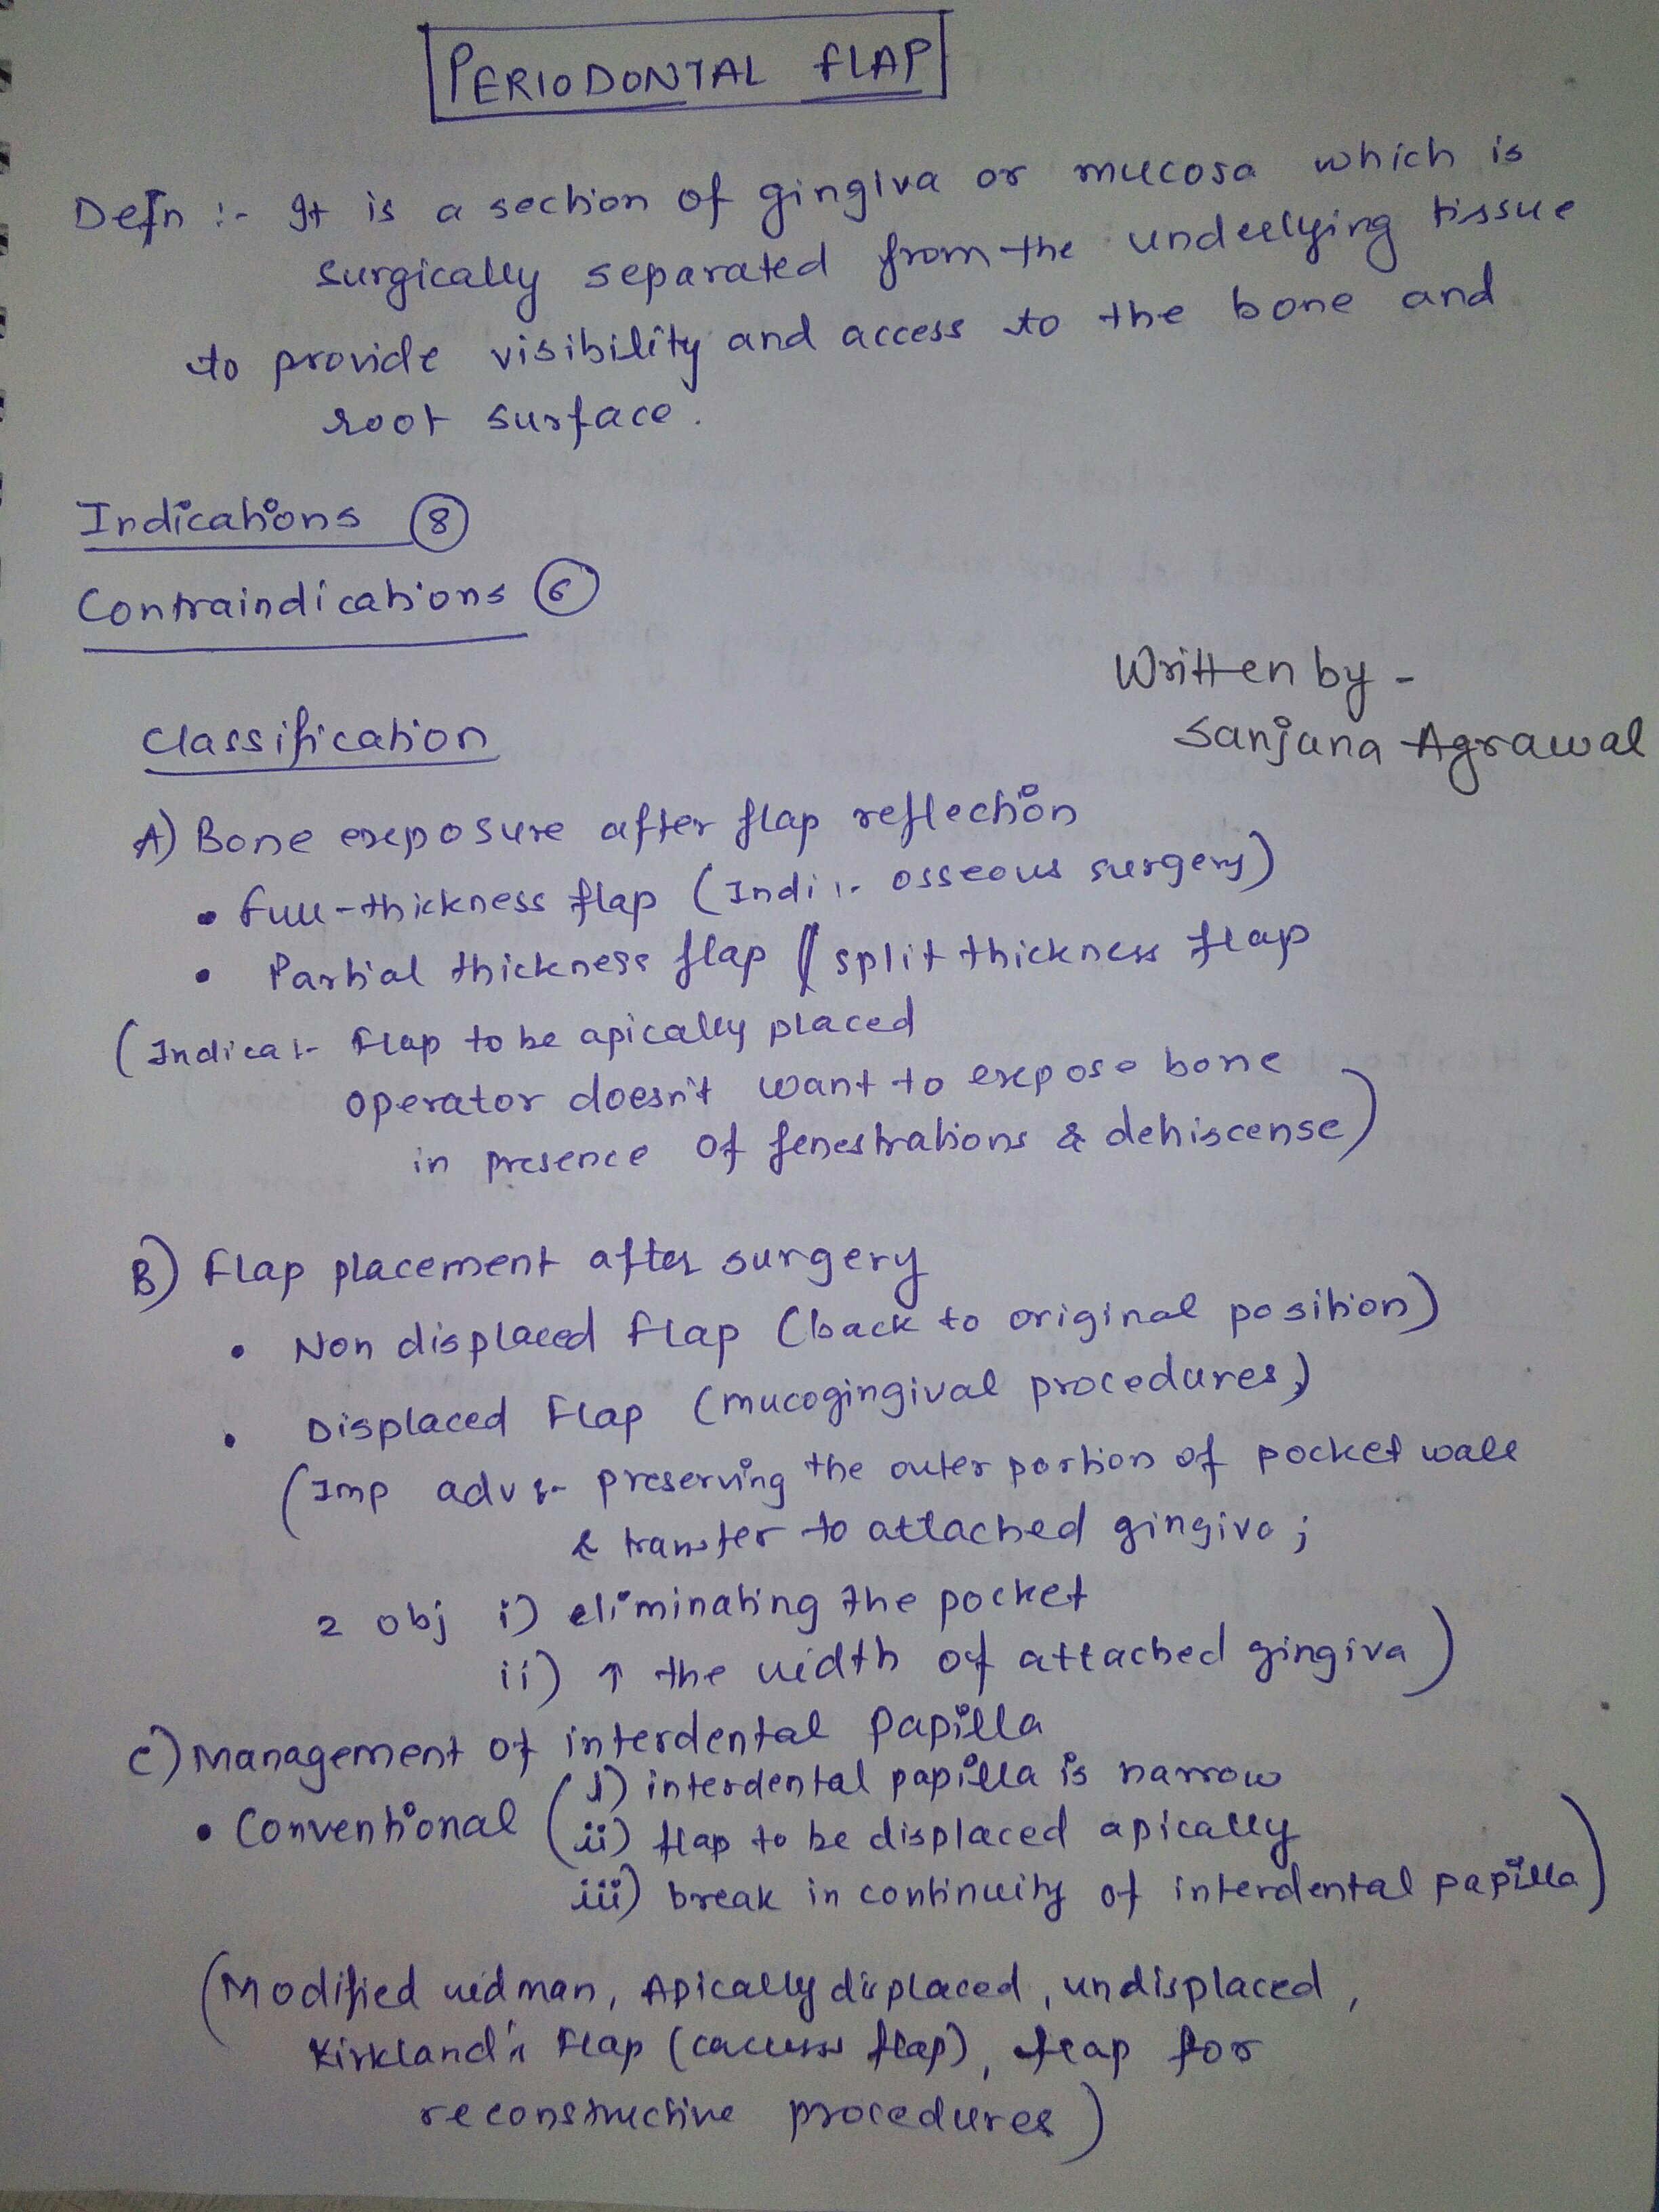 PERIODONTAL FLAP
Defn :- It is a section of gingiva or mucosa which is
surgically separated from the underlying tissue
to provide visibility and access to the bone and
root surface.
Indications 8
Contraindications 6
Written by -
Sanjana Agrawal
Classification
A) Bone exposure after flap reflection
• Full-thickness flap (Indi :- osseous surgery)
• Partial thickness flap / split thickness flap
(Indica :- Flap to be apically placed
operator doesn't want to expose bone
in presence of fenestrations & dehiscense)
B) Flap placement after surgery
• Non displaced flap (back to original position)
• Displaced Flap (mucogingival procedures)
(Imp adv :- preserving the outer portion of pocket wall
& transfer to attached gingiva ;
2 obj i) eliminating the pocket
ii) ↑ the width of attached gingiva)
C) Management of interdental papilla
• Conventional (i) interdental papilla is narrow
ii) flap to be displaced apically
iii) break in continuity of interdental papilla)
(Modified widman, Apically displaced, undisplaced,
Kirkland's Flap (access flap), flap for
reconstructive procedures)